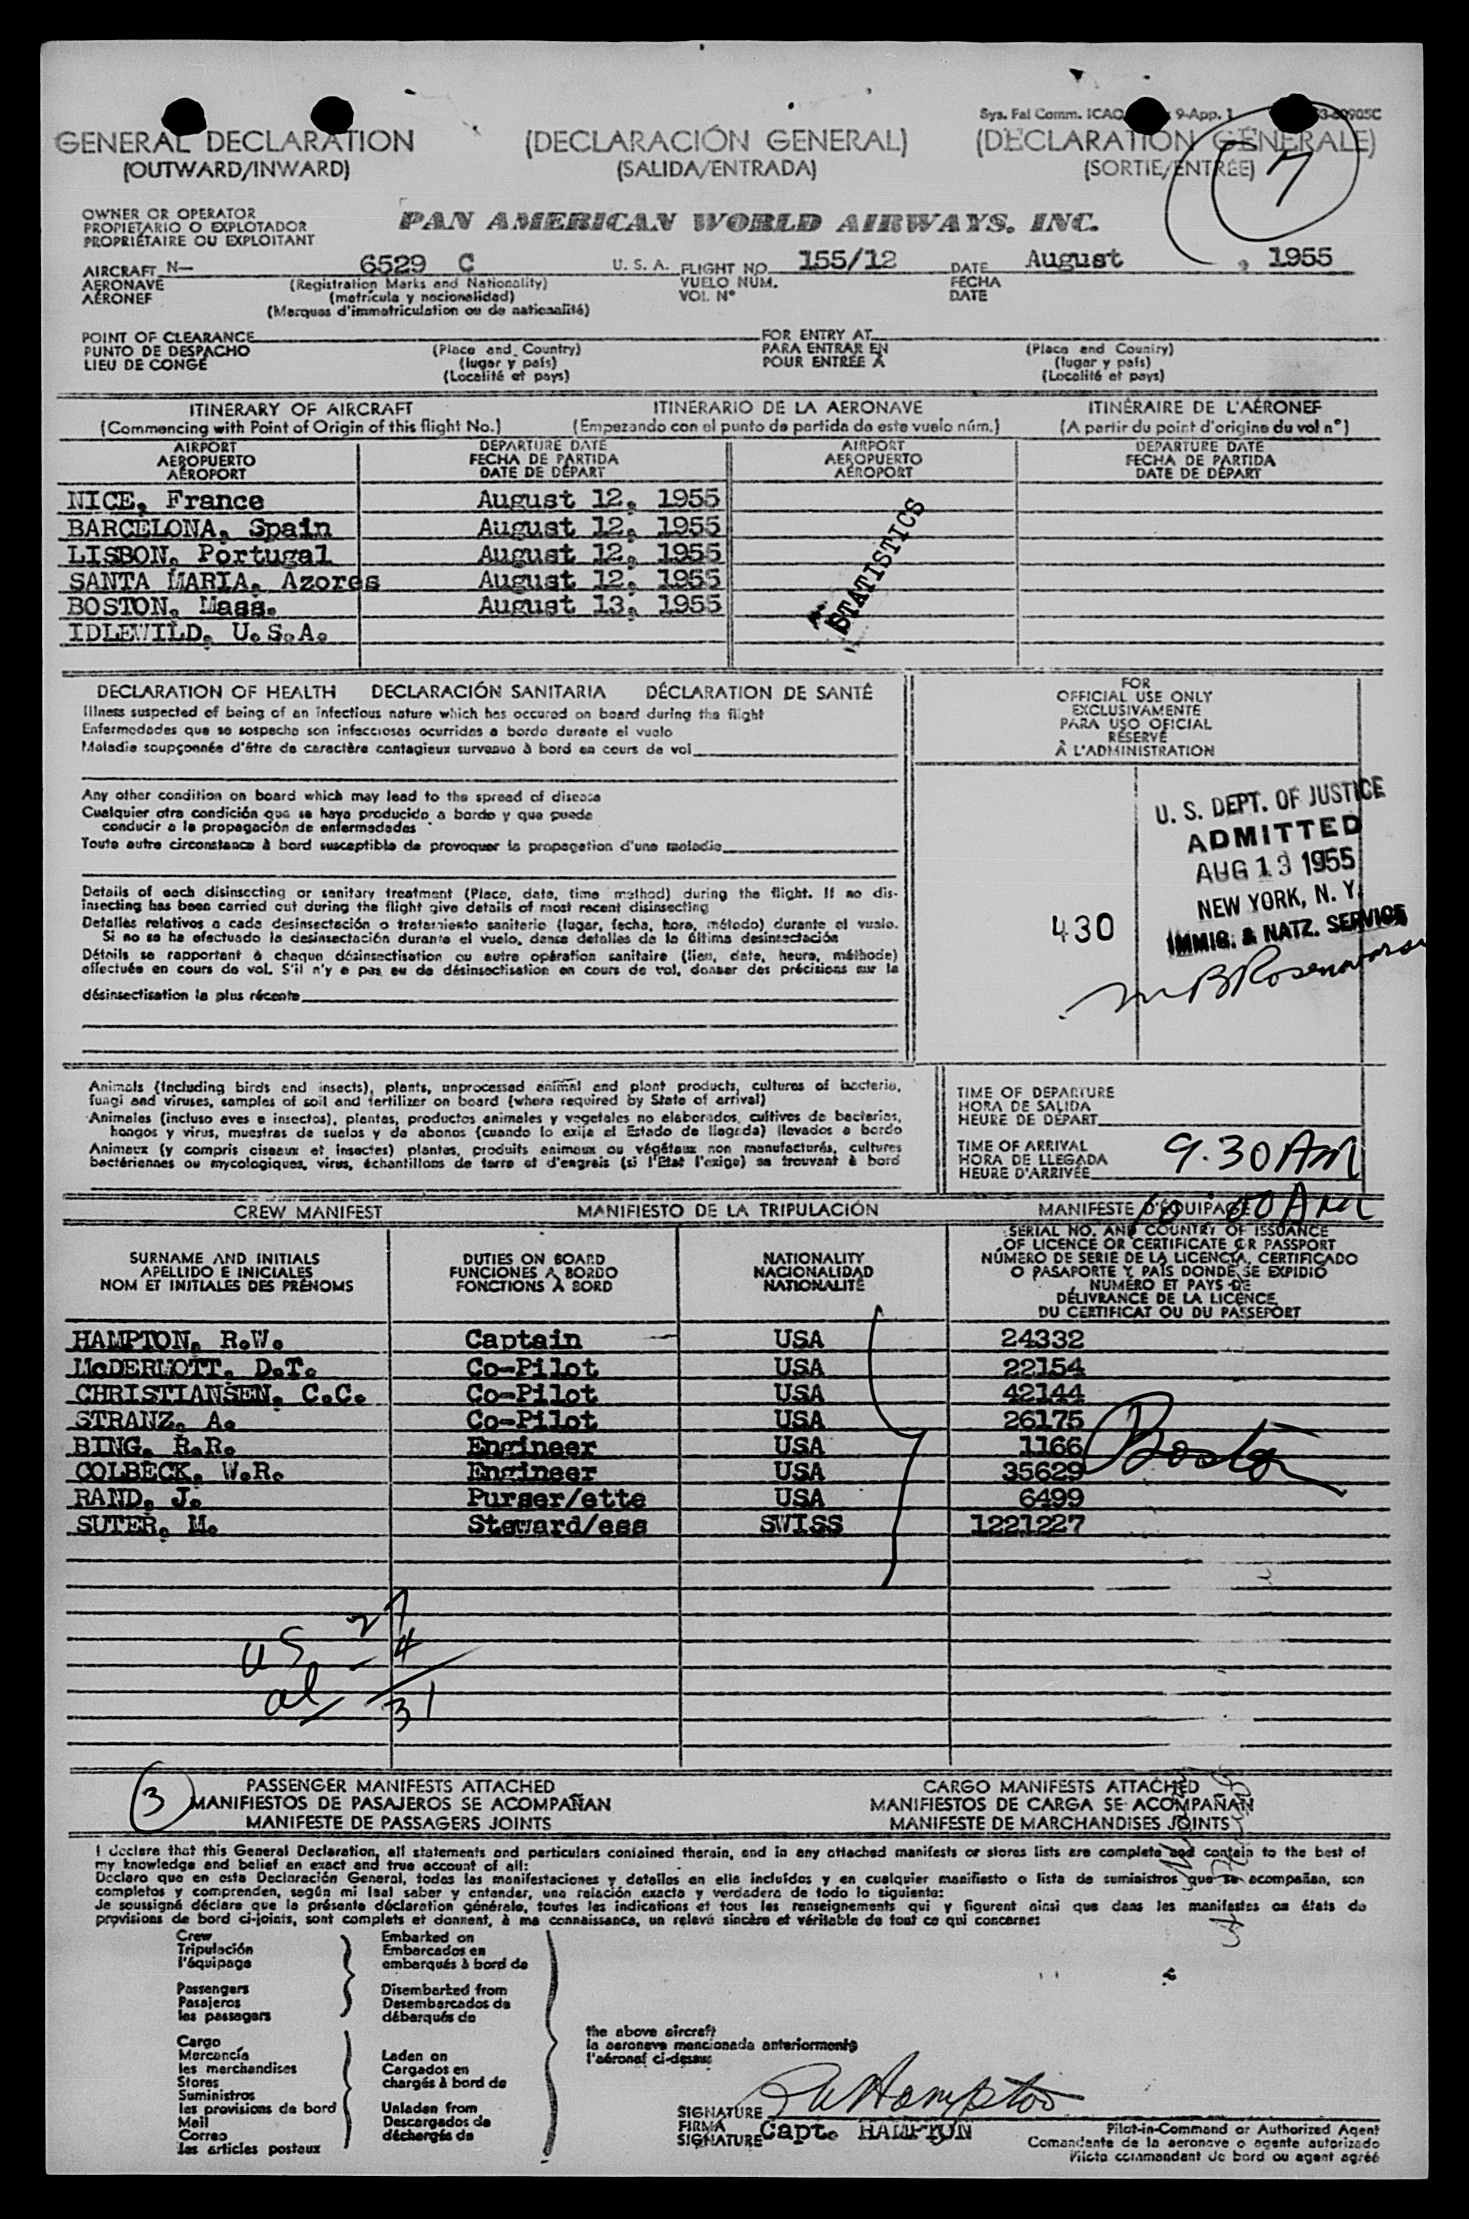 Sys. Fal Comm. ICAO 9-App. 1
GENERAL DECLARATION (DECLARACIÓN GENERAL) (DÉCLARATION GÉNÉRALE)
(OUTWARD/INWARD) (SALIDA/ENTRADA) (SORTIE/ENTRÉE)
7
OWNER OR OPERATOR
PROPIETARIO O EXPLOTADOR
PROPRIÉTAIRE OU EXPLOITANT
PAN AMERICAN WORLD AIRWAYS, INC.
AIRCRAFT N— 6529 C U. S. A. FLIGHT NO. 155/12 DATE August , 1955
AERONAVE (Registration Marks and Nationality) VUELO NÚM. FECHA
AÉRONEF (matrícula y nacionalidad) VOL Nº DATE
(Marques d'immatriculation ou de nationalité)
POINT OF CLEARANCE FOR ENTRY AT
PUNTO DE DESPACHO (Place and Country) PARA ENTRAR EN (Place and Country)
LIEU DE CONGÉ (lugar y país) POUR ENTRÉE À (lugar y país)
(Localité et pays) (Localité et pays)
ITINERARY OF AIRCRAFT ITINERARIO DE LA AERONAVE ITINÉRAIRE DE L'AÉRONEF
(Commencing with Point of Origin of this flight No.) (Empezando con el punto de partida de este vuelo núm.) (A partir du point d'origine du vol nº)
AIRPORT DEPARTURE DATE AIRPORT DEPARTURE DATE
AEROPUERTO FECHA DE PARTIDA AEROPUERTO FECHA DE PARTIDA
AÉROPORT DATE DE DÉPART AÉROPORT DATE DE DÉPART
NICE, France August 12, 1955
BARCELONA, Spain August 12, 1955
LISBON, Portugal August 12, 1955
SANTA MARIA, Azores August 12, 1955
BOSTON, Mass. August 13, 1955
IDLEWILD, U.S.A.
STATISTICS
DECLARATION OF HEALTH DECLARACIÓN SANITARIA DÉCLARATION DE SANTÉ
Illness suspected of being of an infectious nature which has occured on board during the flight
Enfermedades que se sospecha son infecciosas ocurridas a bordo durante el vuelo
Maladie soupçonnée d'être de caractère contagieux survenue à bord en cours de vol
Any other condition on board which may lead to the spread of disease
Cualquier otra condición que se haya producido a bordo y que puede
conducir a la propagación de enfermedades
Toute autre circonstance à bord susceptible de provoquer la propagation d'une maladie
Details of each disinsecting or sanitary treatment (Place, date, time method) during the flight. If no dis-
insecting has been carried out during the flight give details of most recent disinsecting
Detalles relativos a cada desinsectación o tratamiento sanitario (lugar, fecha, hora, método) durante el vuelo.
Si no se ha efectuado la desinsectación durante el vuelo, dense detalles de la última desinsectación
Détails se rapportant à chaque désinsectisation ou autre opération sanitaire (lieu, date, heure, méthode)
effectuée en cours de vol. S'il n'y a pas eu de désinsectisation en cours de vol, donner des précisions sur la
désinsectisation la plus récente
FOR
OFFICIAL USE ONLY
EXCLUSIVAMENTE
PARA USO OFICIAL
RÉSERVÉ
À L'ADMINISTRATION
U. S. DEPT. OF JUSTICE
ADMITTED
AUG 13 1955
NEW YORK, N. Y.
IMMIG. & NATZ. SERVICE
430
Animals (including birds and insects), plants, unprocessed animal and plant products, cultures of bacteria,
fungi and viruses, samples of soil and fertilizer on board (where required by State of arrival)
Animales (incluso aves e insectos), plantas, productos animales y vegetales no elaborados, cultivos de bacterias,
hongos y virus, muestras de suelos y de abonos (cuando lo exija el Estado de llegada) llevados a bordo
Animaux (y compris oiseaux et insectes) plantes, produits animaux ou végétaux non manufacturés, cultures
bactériennes ou mycologiques, virus, échantillons de terre et d'engrais (si l'État l'exige) se trouvant à bord
TIME OF DEPARTURE
HORA DE SALIDA
HEURE DE DÉPART
TIME OF ARRIVAL
HORA DE LLEGADA
HEURE D'ARRIVÉE
9.30 AM
10:00 AM
CREW MANIFEST MANIFIESTO DE LA TRIPULACIÓN MANIFESTE D'ÉQUIPAGE
SURNAME AND INITIALS
APELLIDO E INICIALES
NOM ET INITIALES DES PRÉNOMS
DUTIES ON BOARD
FUNCIONES A BORDO
FONCTIONS À BORD
NATIONALITY
NACIONALIDAD
NATIONALITÉ
SERIAL NO. AND COUNTRY OF ISSUANCE
OF LICENCE OR CERTIFICATE OR PASSPORT
NÚMERO DE SERIE DE LA LICENCIA, CERTIFICADO
O PASAPORTE Y PAÍS DONDE SE EXPIDIÓ
NUMÉRO ET PAYS DE
DÉLIVRANCE DE LA LICENCE,
DU CERTIFICAT OU DU PASSEPORT
HAMPTON, R.W. Captain USA 24332
McDERMOTT, D.T. Co-Pilot USA 22154
CHRISTIANSEN, C.C. Co-Pilot USA 42144
STRANZ, A. Co-Pilot USA 26175
BING, R.R. Engineer USA 1166
COLBECK, W.R. Engineer USA 35629
RAND, J. Purser/ette USA 6499
SUTER, M. Steward/ess SWISS 1221227
Boston
US 27
al 4
31
3
PASSENGER MANIFESTS ATTACHED CARGO MANIFESTS ATTACHED
MANIFIESTOS DE PASAJEROS SE ACOMPAÑAN MANIFIESTOS DE CARGA SE ACOMPAÑAN
MANIFESTE DE PASSAGERS JOINTS MANIFESTE DE MARCHANDISES JOINTS
I declare that this General Declaration, all statements and particulars contained therein, and in any attached manifests or stores lists are complete and contain to the best of
my knowledge and belief an exact and true account of all:
Declaro que en esta Declaración General, todas las manifestaciones y detalles en ella incluídos y en cualquier manifiesto o lista de suministros que se acompañan, son
completos y comprenden, según mi leal saber y entender, una relación exacta y verdadera de todo lo siguiente:
Je soussigné déclare que la présente déclaration générale, toutes les indications et tous les renseignements qui y figurent ainsi que dans les manifestes ou états de
provisions de bord ci-joints, sont complets et donnent, à ma connaissance, un relevé sincère et véritable de tout ce qui concerne:
Crew Embarked on
Tripulación Embarcados en
l'équipage embarqués à bord de
Passengers Disembarked from
Pasajeros Desembarcados de
les passagers débarqués de
Cargo
Mercancía Laden on
les marchandises Cargados en
Stores chargés à bord de
Suministros
les provisions de bord Unladen from
Mail Descargados de
Correo déchargés de
les articles postaux
the above aircraft
la aeronave mencionada anteriormente
l'aéronef ci-dessus
SIGNATURE RW Hampton
FIRMA
SIGNATURE Capt. HAMPTON
Pilot-in-Command or Authorized Agent
Comandante de la aeronave o agente autorizado
Pilote commandant de bord ou agent agréé